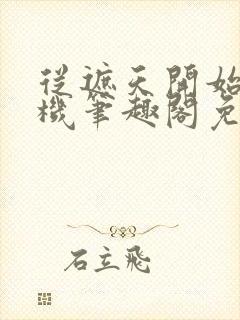 從遮天開始
機筆趣閣免
石立飛